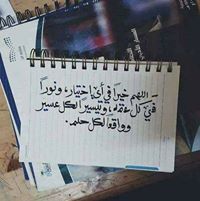 اللهم خيراً في أي اختيار، ونوراً
في كل عتمة، وتيسيراً لكل عسير
وواقعاً لكل حلم.